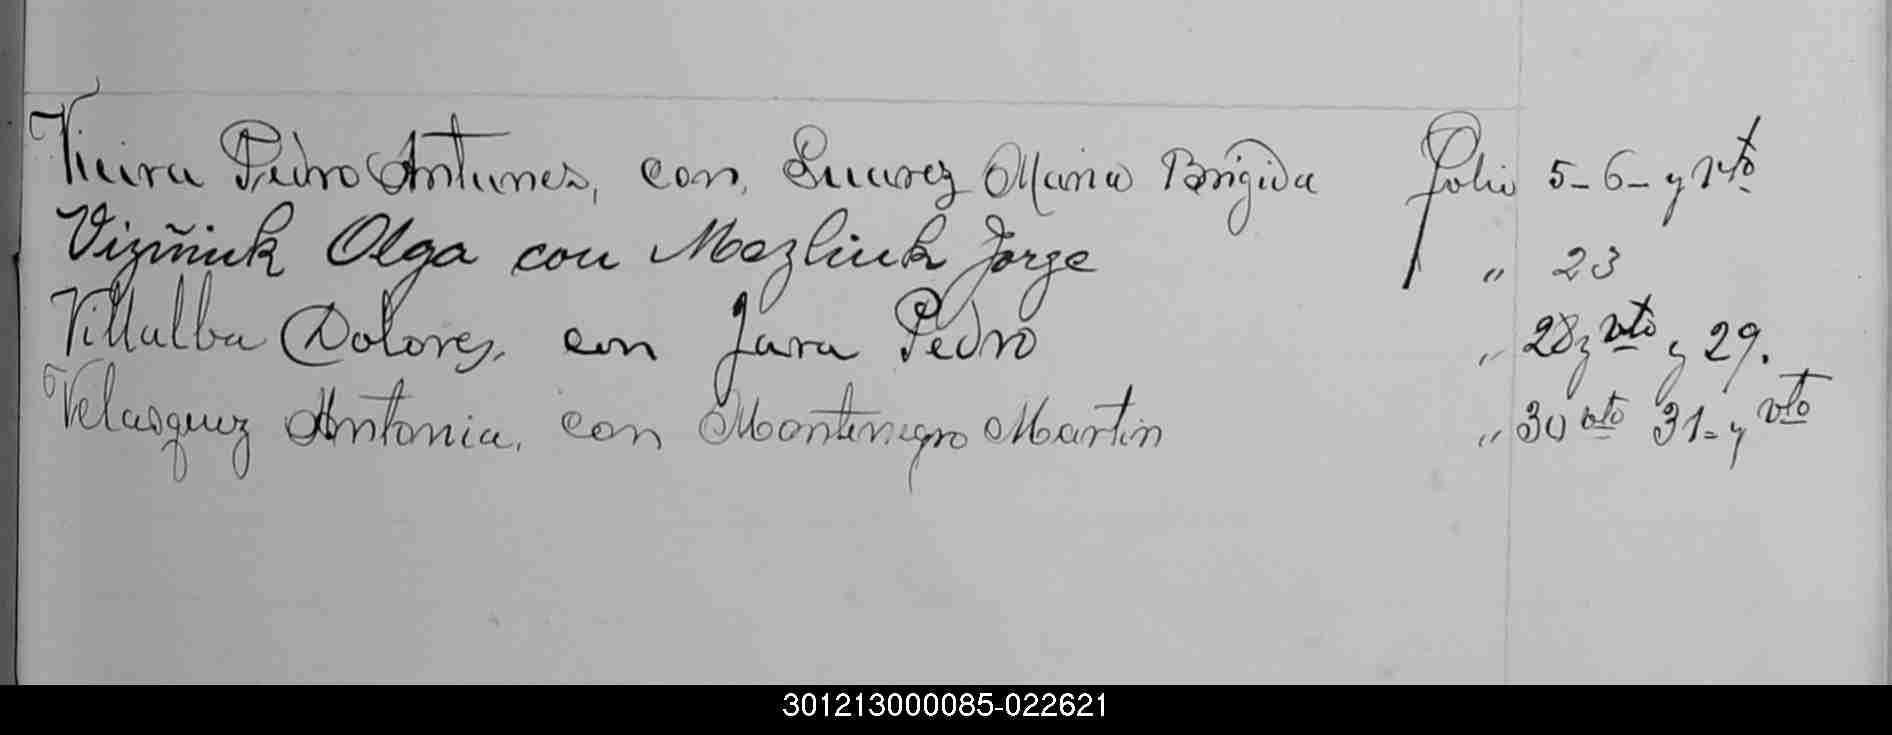 Vieira Pedro Antunes, con, Suarez Maria Brigida Folio 5-6- y vto
Vizñiuk Olga con Mezliuk Jorge " 23
Villalba Dolores, con Jara Pedro " 28 y vto y 29.
Velasquez Antonia, con Montenegro Martin " 30 vto 31= y vto
301213000085-022621